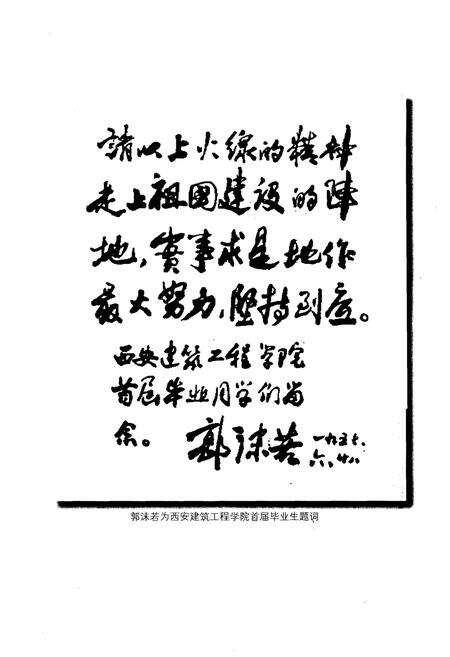 請以上火線的精神
走上祖國建設的陣
地，實事求是地作
最大努力，堅持到底。
西安建筑工程学院
首届毕业同学们留
念。
郭沫若 一九五七、
六、廿八
郭沫若为西安建筑工程学院首届毕业生题词